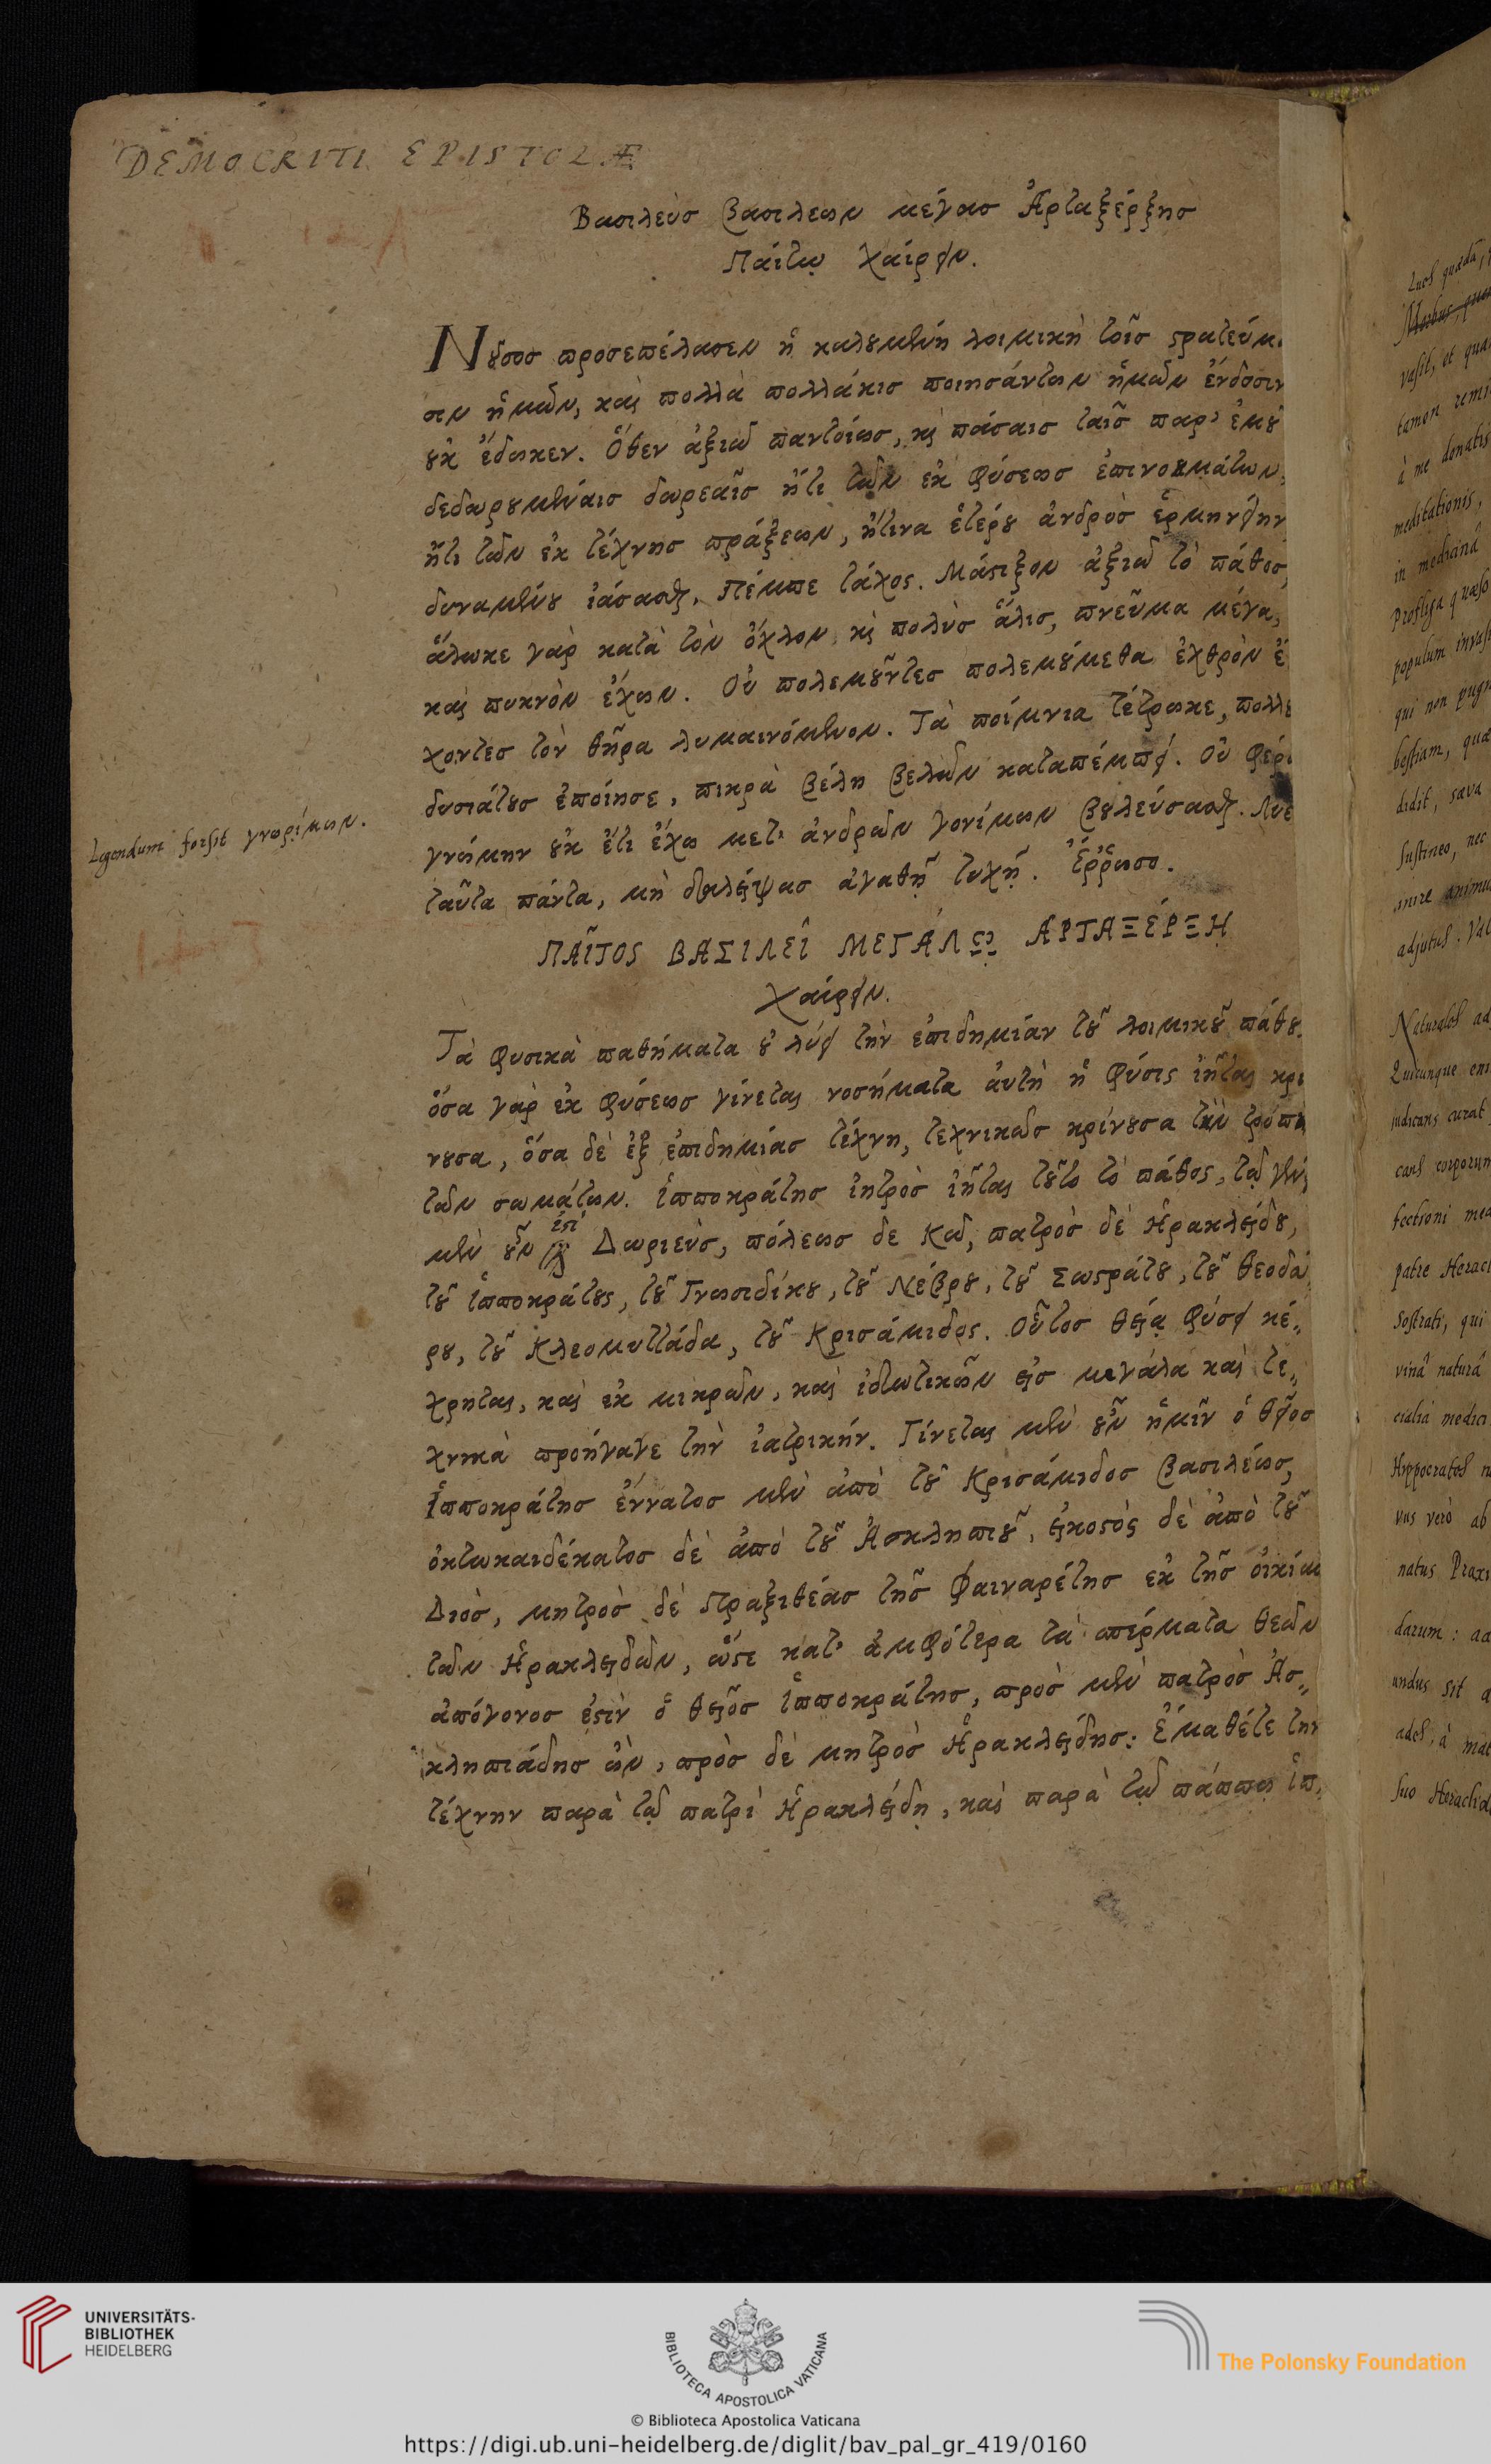 DEMOCRITI EPISTOLÆ
Βασιλεὺσ βασιλεων μέγασ Ἀρταξέρξησ
Παίτῳ χαίρειν.
Νοῦσοσ προσεπέλασεν ἡ καλουμένη λοιμικὴ τοῖσ στρατεύμα
σιν ἡμῶν, καὶ πολλὰ πολλάκισ ποιησάντων ἡμῶν ἔνδοσιν
οὐκ ἔδωκεν. Ὅθεν ἀξιῶ παντοίωσ, καὶ πάσαισ ταῖσ παρ' ἐμοῦ
δεδωρουμέναισ δωρεαῖσ ἤτι τῶν ἐκ φύσεωσ ἐπινοημάτων,
ἤτι τῶν ἐκ τέχνησ πράξεων, ἤτινα ἑτέρου ἀνδρὸσ ἑρμηνείην
δυναμένου ἰάσασθαι, πέμπε τάχος. Μάστιξον ἀξιῶ τὸ πάθοσ,
ἄλωκε γὰρ κατὰ τὸν ὄχλον καὶ πολὺσ ἅλισ, πνεῦμα μέγα,
καὶ πυκνὸν ἔχων. Οὐ πολεμοῦντεσ πολεμούμεθα ἐχθρὸν ἔ
χοντεσ τὸν θῆρα λυμαινόμενον. Τὰ ποίμνια τέτρωκε, πολλο
δυσιάτουσ ἐποίησε, πικρὰ βέλη βελῶν καταπέμπει. Οὐ φέρω
γνώμην οὐκ ἔτι ἔχω μετ' ἀνδρῶν γονίμων βουλεύσασθαι. Λυε
Legendum forsit γνωρίμων.
ταῦτα πάντα, μὴ διαλείψασ ἀγαθῇ τυχῇ. Ἔῤῥωσο.
ΠΑῖΤΟΣ ΒΑΣΙΛΕῖ ΜΕΓΆΛΩ ἈΡΤΑΞΈΡΞΗ
χαίρειν.
Τὰ φυσικὰ παθήματα οὐ λύει τὴν ἐπιδημίαν τοῦ λοιμικοῦ πάθου.
ὅσα γὰρ ἐκ φύσεωσ γίνεται νοσήματα ἀυτὴ ἡ φύσις ἰῆται κρι
νουσα, ὅσα δὲ ἐξ ἐπιδημίασ τέχνη, τεχνικῶσ κρίνουσα τὴν τρόπω
τῶν σωμάτων. Ἱπποκράτησ ἰητρὸσ ἰῆται τοῦτο τὸ πάθος, τῷ γένει
μὲν οὖν ἐστὶ Δωριεὺσ, πόλεωσ δε Κῶ, πατρὸσ δὲ Ἡρακλείδου,
τοῦ Ἱπποκράτους, τοῦ Γνωσιδίκου, τοῦ Νέβρου, τοῦ Σωστράτου, τοῦ θεοδώ
ρου, τοῦ Κλεομυττάδα, τοῦ Κρισάμιδος. Οὗτοσ θείᾳ φύσει κέ-
χρηται, καὶ ἐκ μικρῶν, καὶ ἰδιωτικῶν εἰσ μεγάλα καὶ τε-
χνικὰ προήγαγε τὴν ἰατρικήν. Γίνεται μὲν οὖν ἡμῖν ὁ θεῖοσ
Ἱπποκράτησ ἔννατοσ μὲν ἀπὸ τοῦ Κρισάμιδοσ βασιλέωσ,
ὀκτωκαιδέκατοσ δὲ ἀπὸ τοῦ Ἀσκληπιοῦ, εἰκοστὸς δὲ ἀπὸ τοῦ
Διὸσ, μητρὸσ δὲ Πραξιθέασ τῆσ Φαιναρέτησ ἐκ τῆσ οἰκίασ
τῶν Ἡρακλειδῶν, ὥστε κατ' ἀμφότερα τὰ σπέρματα θεῶν
ἀπόγονοσ ἐστὶν ὁ θεῖοσ Ἱπποκράτησ, πρὸσ μὲν πατρὸσ Ἀσ-
κληπιάδησ ὢν, πρὸσ δὲ μητρὸσ Ἡρακλείδησ: Ἐμαθέτε την
τέχνην παρὰ τῷ πατρὶ Ἡρακλείδῃ, καὶ παρὰ τῷ πάππῳ Ἱπ,
Lues quædã,
Morbus, quem
vasit, et qua
tamen remis
à me donatis
meditationis,
in medicinâ
Profliga quæso
populum invasi
qui non pugn
bestiam, quæ
didit, sæva
sustineo, nec
inire animu
adjutus. Val
Naturales ad
Quicunque eni
judicans curat
cans corporum
fectioni med
patre Heracl
Sostrati, qui
vinâ naturâ
cialia medici
Hippocrates n
vus verò ab
natus Praxi
darum: ad
undus sit a
ades, à mat
suo Heraclid
UNIVERSITÄTS-
BIBLIOTHEK
HEIDELBERG
BIBLIOTECA APOSTOLICA VATICANA
The Polonsky Foundation
© Biblioteca Apostolica Vaticana
https://digi.ub.uni-heidelberg.de/diglit/bav_pal_gr_419/0160